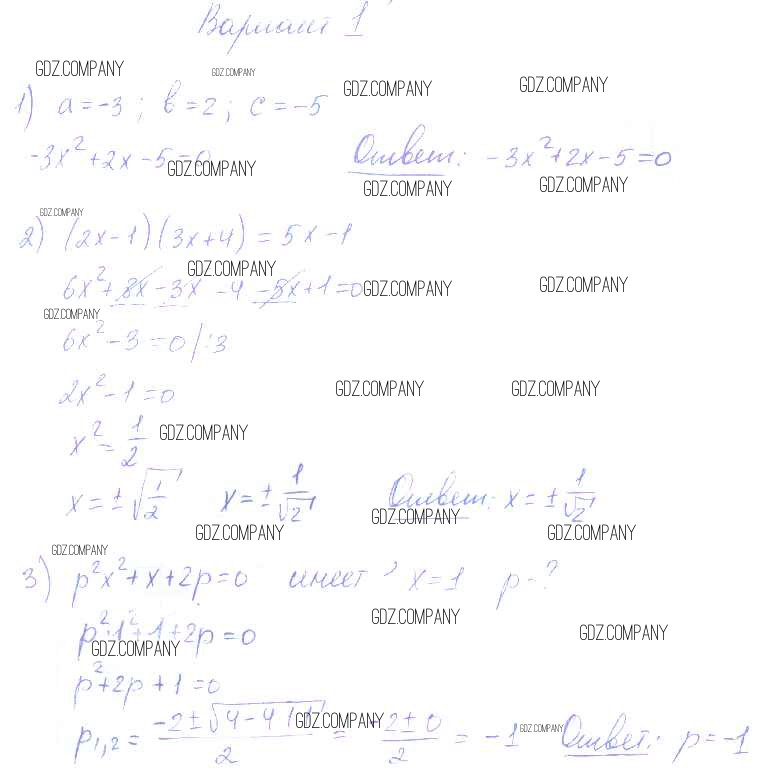 Вариант 1
GDZ.COMPANY GDZ.COMPANY GDZ.COMPANY GDZ.COMPANY
1) a = -3 ; b = 2 ; c = -5
-3x² + 2x - 5 = 0 Ответ: -3x² + 2x - 5 = 0
GDZ.COMPANY GDZ.COMPANY GDZ.COMPANY
GDZ.COMPANY
2) (2x - 1)(3x + 4) = 5x - 1
GDZ.COMPANY GDZ.COMPANY GDZ.COMPANY
6x² + 8x - 3x - 4 - 5x + 1 = 0
GDZ.COMPANY
6x² - 3 = 0 | :3
2x² - 1 = 0
GDZ.COMPANY GDZ.COMPANY
x² = 1/2
GDZ.COMPANY
x = ± √(1/2) x = ± 1/√2 Ответ: x = ± 1/√2
GDZ.COMPANY GDZ.COMPANY GDZ.COMPANY
GDZ.COMPANY
3) p²x² + x + 2p = 0 имеет x = 1 p - ?
GDZ.COMPANY GDZ.COMPANY
p²·1² + 1 + 2p = 0
GDZ.COMPANY
p² + 2p + 1 = 0
p₁,₂ = (-2 ± √(4 - 4·1·1))/2 = (-2 ± 0)/2 = -1 Ответ: p = -1
GDZ.COMPANY GDZ.COMPANY